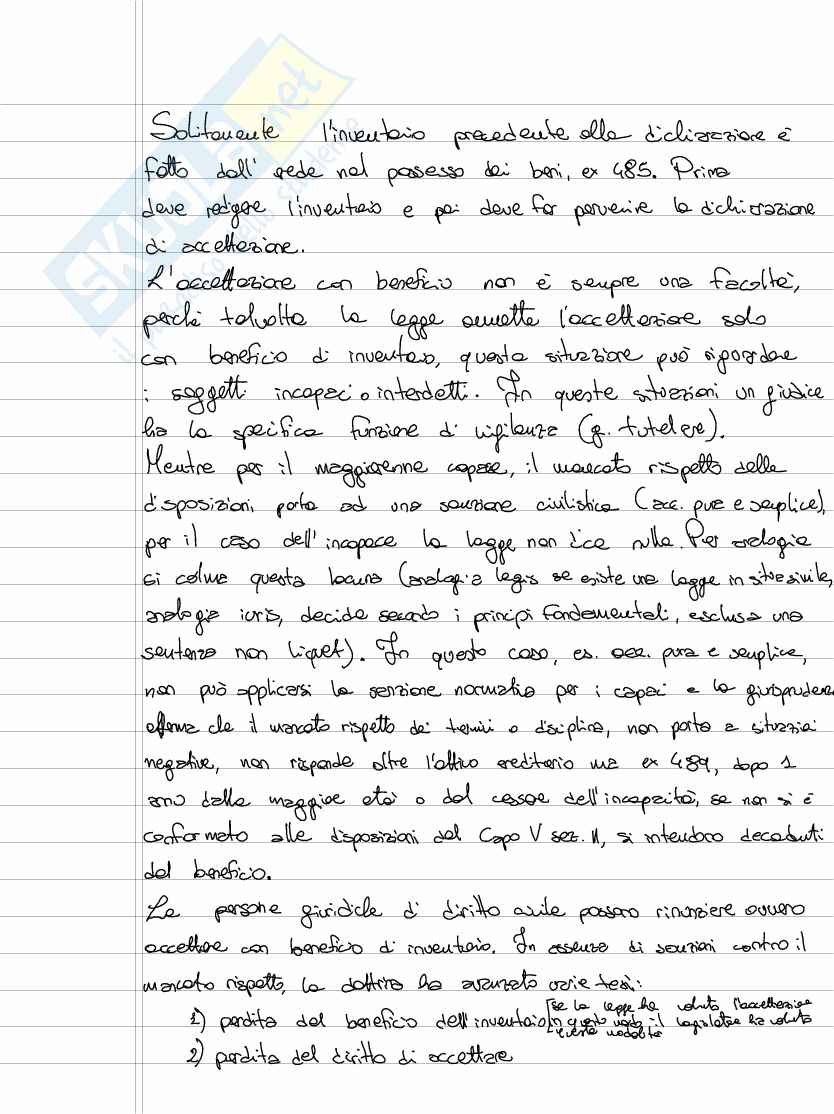 SKUOLA.net
il paradiso dello studente
Solitamente l'inventario precedente alla dichiarazione è
fatto dall'erede nel possesso dei beni, ex 485. Prima
deve redigere l'inventario e poi deve far pervenire la dichiarazione
di accettazione.
L'accettazione con beneficio non è sempre una facoltà,
perchè talvolta la legge ammette l'accettazione solo
con beneficio di inventario, questa situazione può riguardare
i soggetti incapaci o interdetti. In queste situazioni un giudice
ha la specifica funzione di vigilanza (g. tutelare).
Mentre per il maggiorenne capace, il mancato rispetto delle
disposizioni porta ad una sanzione civilistica (acc. pura e semplice),
per il caso dell'incapace la legge non dice nulla. Per analogia
si colma questa lacuna (analogia legis se esiste una legge in situaz simile,
analogia iuris, decide secondo i principi fondamentali, esclusa una
sentenza non liquet). In questo caso, es. acc. pura e semplice,
non può applicarsi la sanzione normativa per i capaci e la giurisprudenza
afferma che il mancato rispetto dei termini o disciplina, non porta a situazioni
negative, non risponde oltre l'attivo ereditario ma ex 489, dopo 1
anno dalla maggiore età o dal cessare dell'incapacità, se non si è
conformato alle disposizioni del Capo V sez. II, si intendono decaduti
dal beneficio.
Le persone giuridiche di diritto civile possono rinunziare ovvero
accettare con beneficio di inventario. In assenza di sanzioni contro il
mancato rispetto, la dottrina ha avanzato varie tesi:
1) perdita del beneficio dell'inventario [se la legge ha voluto l'accettazione
in questo modo il legislatore ha voluto
questa modalità
2) perdita del diritto di accettare